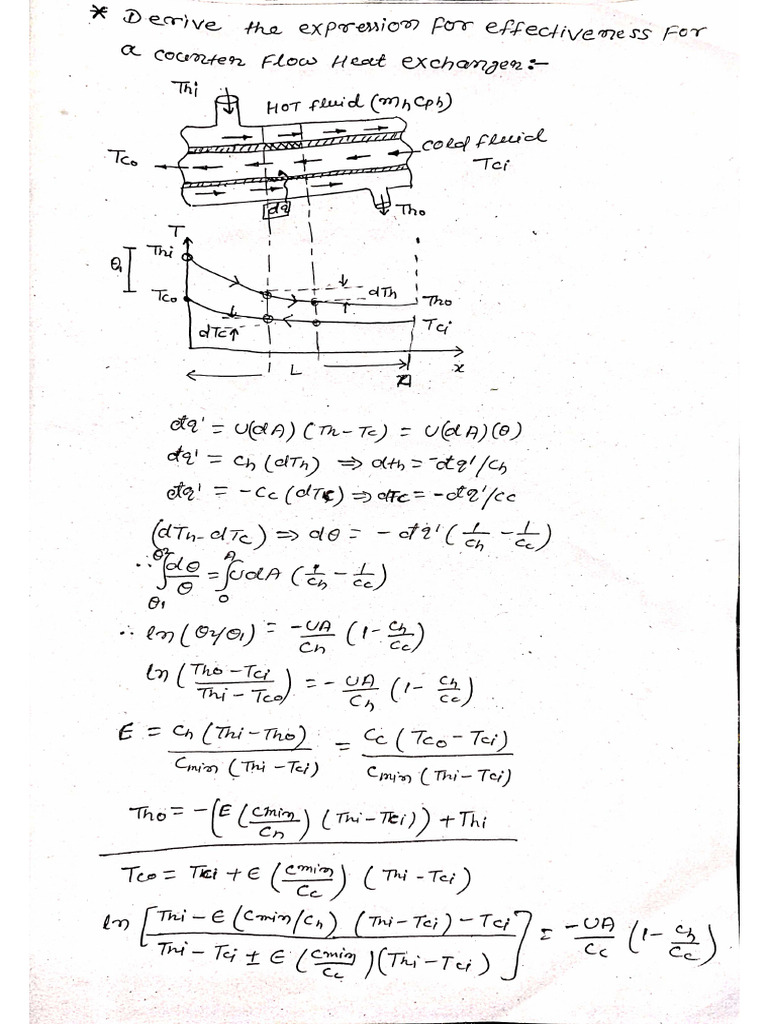 * Derive the expression for effectiveness for
a counter flow Heat exchanger:-
Thi
HOT fluid (mhCph)
Cold fluid
Tco
Tci
dq
Tho
T
Thi
θ1
dTh
Tco
Tho
Tci
dTc
L
x
dq' = U(dA) (Th-Tc) = U(dA)(θ)
dq' = Ch (dTh) ⇒ dth = -dq'/Ch
dq' = -Cc (dTc) ⇒ dTc = -dq'/Cc
(dTh-dTc) ⇒ dθ = - dq' (1/Ch - 1/Cc)
∴ ∫θ1^θ2 dθ/θ = ∫0^A UdA (1/Ch - 1/Cc)
∴ ln (θ2/θ1) = -UA/Ch (1 - Ch/Cc)
ln ((Tho-Tci)/(Thi-Tco)) = - UA/Ch (1 - Ch/Cc)
E = Ch (Thi-Tho)/Cmin (Thi-Tci) = Cc (Tco-Tci)/Cmin (Thi-Tci)
Tho = -(E (Cmin/Ch) (Thi-Tci)) + Thi
Tco = Tci + E (Cmin/Cc) (Thi-Tci)
ln [(Thi - E (Cmin/Ch) (Thi-Tci) - Tci)/(Thi - Tci ± E (Cmin/Cc)(Thi-Tci))] = -UA/Cc (1 - Ch/Cc)